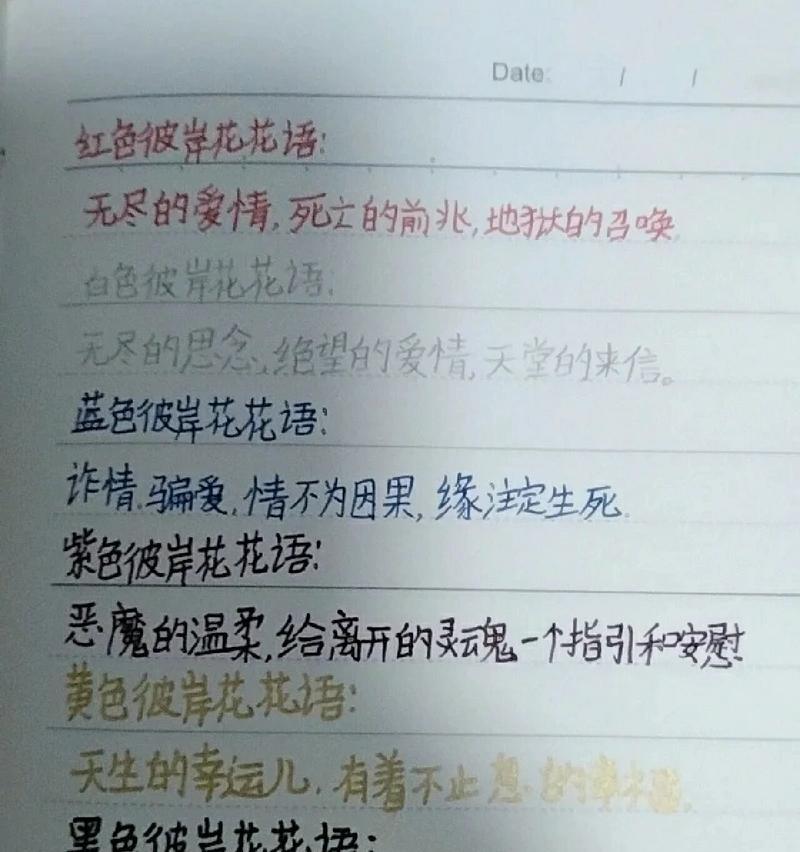 Date: / /
红色彼岸花花语:
无尽的爱情,死亡的前兆,地狱的召唤.
白色彼岸花花语:
无尽的思念、绝望的爱情,天堂的来信。
蓝色彼岸花花语:
诈情.骗爱,情不为因果,缘注定生死.
紫色彼岸花花语:
恶魔的温柔,给离开的灵魂一个指引和安慰.
黄色彼岸花花语:
天生的幸运儿.有着不止息的幸福.
黑色彼岸花花语: